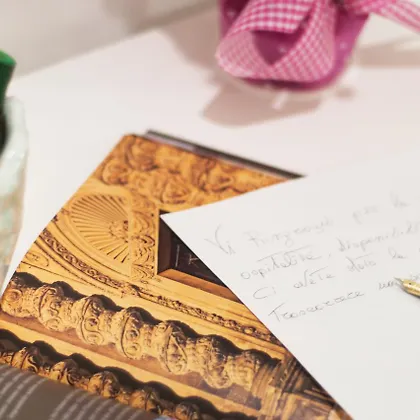 Vi Ringrazio per la
ospitalità, disponibilità
Ci avete dato la
Trascorrere una